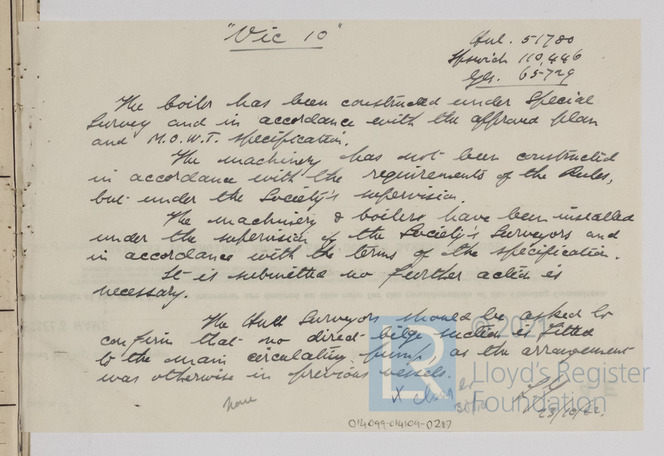 "Vic 10"
Hul. 51780
Ipswich 110,446
Gls. 65729
The boiler has been constructed under Special
Survey and in accordance with the approved plan
and M.O.W.T. specification.
The machinery has not been constructed
in accordance with the requirements of the Rules,
but under the Society's supervision.
The machinery & boilers have been installed
under the supervision of the Society's Surveyors and
in accordance with the terms of the specification.
It is submitted no further action is
necessary.
The Hull Surveyors should be asked to
confirm that no direct bilge suction is fitted
to the main circulating pump as the arrangement
was otherwise in previous vessels.
© 2021
Lloyd's Register
Foundation
LR
X
23/10/42
014099-014109-0287